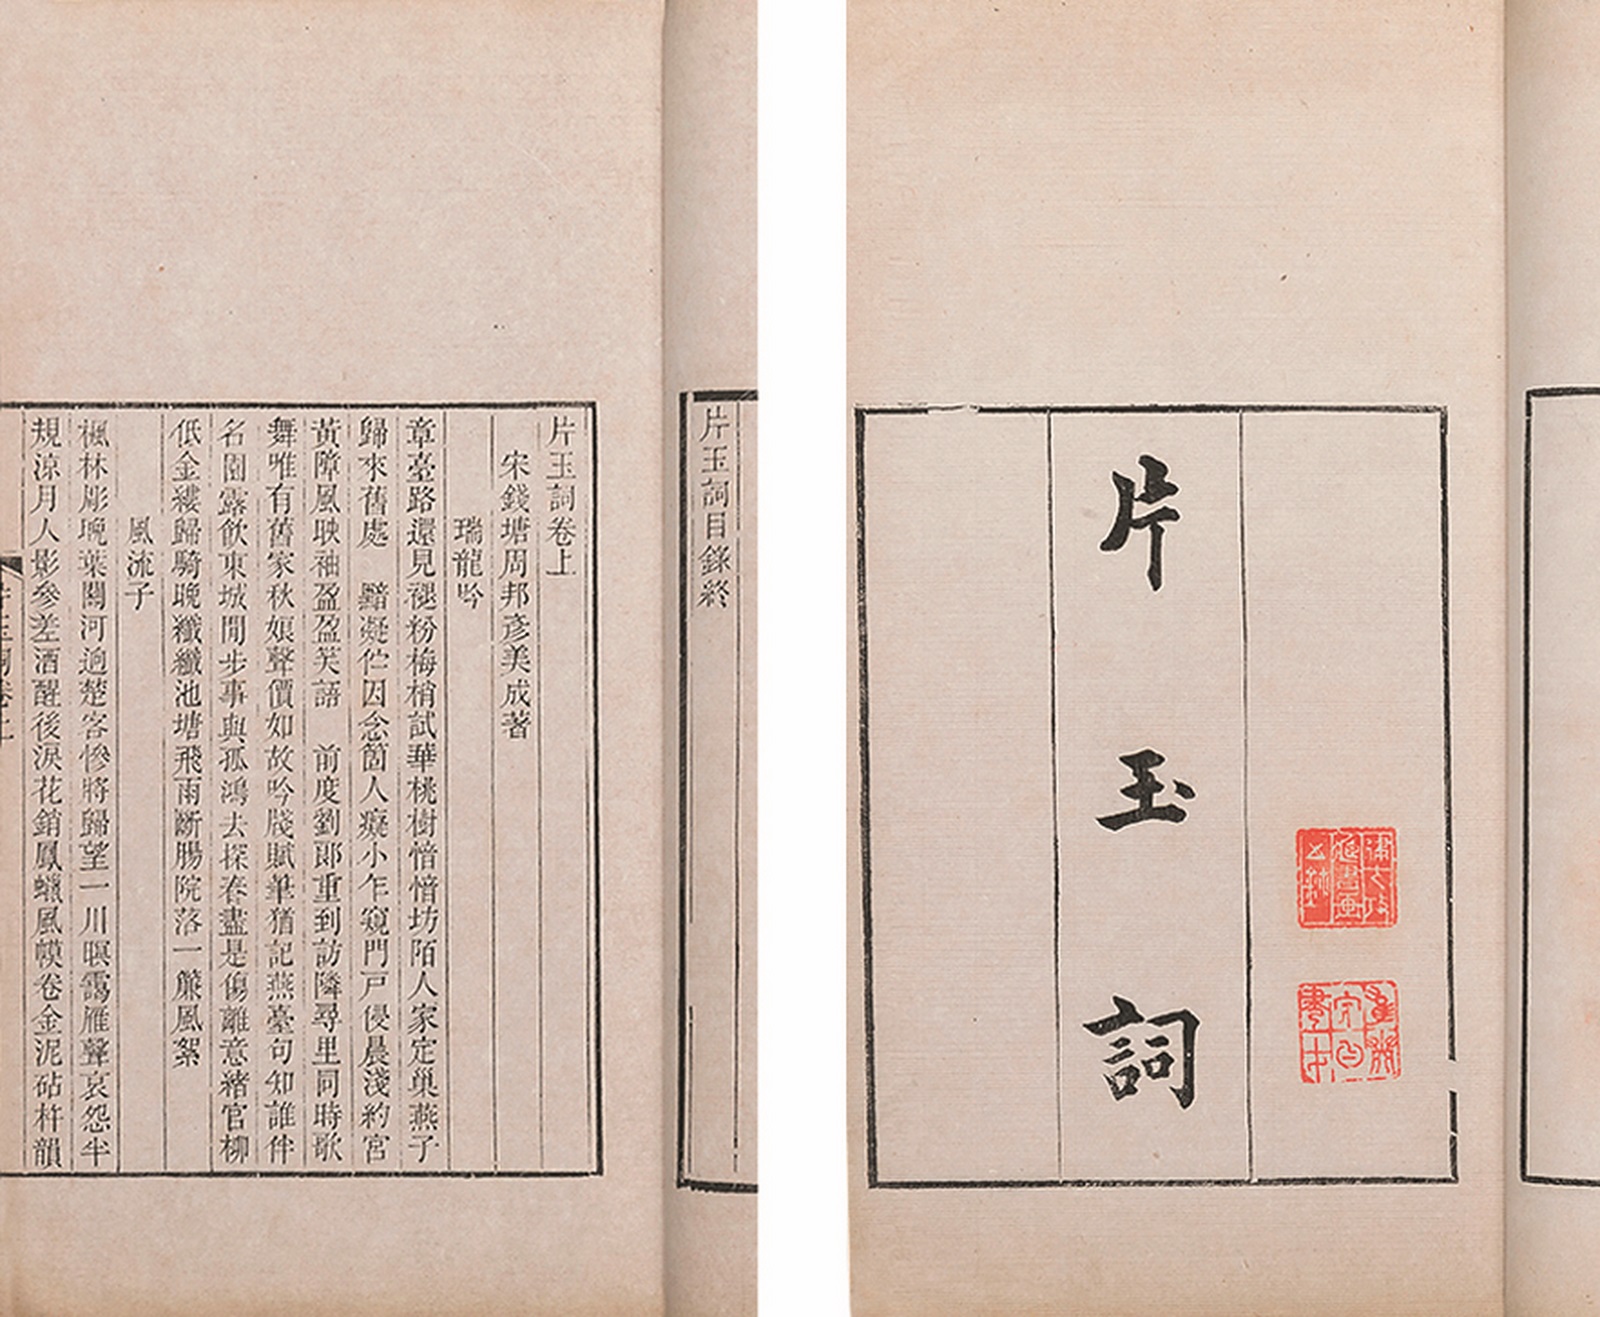 片玉詞
片玉詞目錄終
片玉詞卷上
宋錢塘周邦彥美成著
瑞龍吟
章臺路還見褪粉梅梢試華桃樹愔愔坊陌人家定巢燕子
歸來舊處 黯凝伫因念箇人癡小乍窺門戸侵晨淺約宮
黃障風映袖盈盈笑語 前度劉郎重到訪隣尋里同時歌
舞唯有舊家秋娘聲價如故吟牋賦筆猶記燕臺句知誰伴
名園露飲東城閒步事與孤鴻去探春盡是傷離意緒官柳
低金縷歸騎晚纖纖池塘飛雨斷腸院落一簾風絮
風流子
楓林彫晚葉關河迥楚客慘將歸望一川暝靄雁聲哀怨半
規涼月人影參差酒醒後淚花銷鳳蠟風幙卷金泥砧杵韻
片玉詞卷上